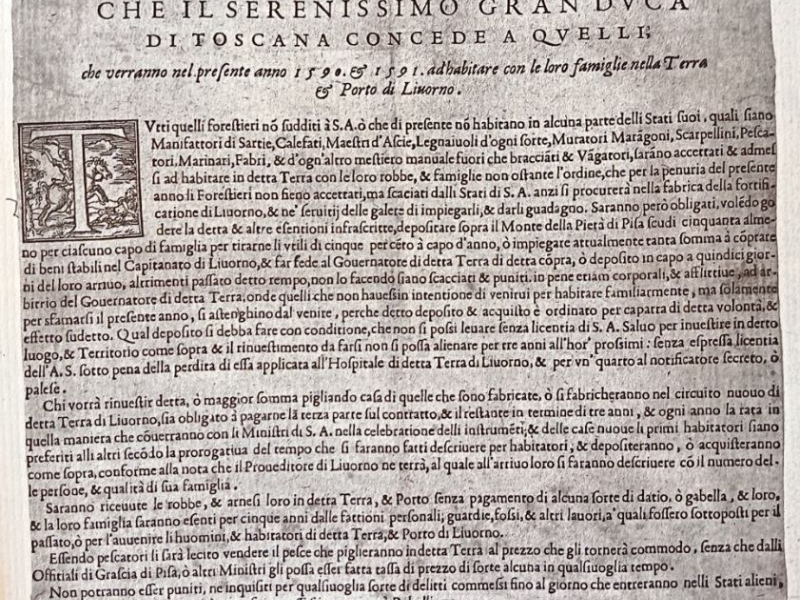 CHE IL SERENISSIMO GRAN DVCA
DI TOSCANA CONCEDE A QVELLI;
che verranno nel presente anno 1590. & 1591. ad habitare con le loro famiglie nella Terra
& Porto di Liuorno.
TVtti quelli forestieri nō sudditi à S.A. ò che di presente nō habitano in alcuna parte delli Stati suoi, quali siano
Manifattori di Sartie, Calefati, Maestri d'Ascie, Legnaiuoli d'ogni sorte, Muratori Marāgoni, Scarpellini, Pesca-
tori, Marinari, Fabri, & d'ogn'altro mestiero manuale fuori che bracciāti & Vāgatori, sarāno accettati & admes
si ad habitare in detta Terra con le loro robbe, & famiglie non ostante l'ordine, che per la penuria del presente
anno li Forestieri non sieno accettati, ma scaciati dalli Stati di S. A. anzi si procurerà nella fabrica della fortifi-
catione di Liuorno, & ne' seruitij delle galere di impiegarli, & darli guadagno. Saranno però obligati, volēdo go
dere la detta & altre esentioni infrascritte, depositare sopra il Monte della Pietà di Pisa scudi cinquanta alme-
no per ciascuno capo di famiglia per tirarne li vtili di cinque per cēto à capo d'anno, ò impiegare attualmente tanta somma à cōprare
di beni stabili nel Capitanato di Liuorno, & far fede al Gouernatore di detta Terra di detta cōpra, ò deposito in capo a quindici gior-
ni del loro arriuo, altrimenti passato detto tempo, non lo facendo siano scacciati & puniti. in pene etiam corporali, & afflittiue, ad ar-
bitrio del Gouernatore di detta Terra, onde quelli che non hauessin intentione di venirui per habitare familiarmente, ma solamente
per sfamarsi il presente anno, si astenghino dal venire, perche detto deposito & acquisto è ordinato per caparra di detta volontà, &
effetto sudetto. Qual deposito si debba fare con conditione, che non si possi leuare senza licentia di S. A. Saluo per inuestire in detto
luogo, & Territorio come sopra & il rinuestimento da farsi non si possa alienare per tre anni all'hor' prossimi: senza espressa licentia
dell'A.S. sotto pena della perdita di essa applicata all'Hospitale di detta Terra di Liuorno, & per vn' quarto al notificatore secreto, ò
palese.
Chi vorrà rinuestir detta, ò maggior somma pigliando casa di quelle che sono fabricate, ò si fabricheranno nel circuito nuouo di
detta Terra di Liuorno, sia obligato à pagarne la terza parte sul contratto, & il restante in termine di tre anni, & ogni anno la rata in
quella maniera che cōuerranno con li Ministri di S. A. nella celebratione delli instrumēti, & delle case nuoue li primi habitatori siano
preferiti alli altri secōdo la prorogatiua del tempo che si faranno fatti descriuere per habitatori, & depositeranno, ò acquisteranno
come sopra, conforme alla nota che il Proueditore di Liuorno ne terrà, al quale all'arriuo loro si faranno descriuere cō il numero del-
le persone, & qualità di sua famiglia.
Saranno riceuute le robbe, & arnesi loro in detta Terra, & Porto senza pagamento di alcuna sorte di datio, ò gabella, & loro,
& la loro famiglia saranno esenti per cinque anni dalle fattioni personali, guardie, fossi, & altri lauori, a' quali fossero sottoposti per il
passato, ò per l'auuenire li huomini, & habitatori di detta Terra, & Porto di Liuorno.
Essendo pescatori li sarà lecito vendere il pesce che piglieranno in detta Terra al prezzo che gli tornerà commodo, senza che dalli
Offitiali di Grascia di Pisa, ò altri Ministri gli possa esser fatta tassa di prezzo di sorte alcuna in qualsiuoglia tempo.
Non potranno esser puniti, ne inquisiti per qualsiuoglia sorte di delitti commessi fino al giorno che entreranno nelli Stati alieni,